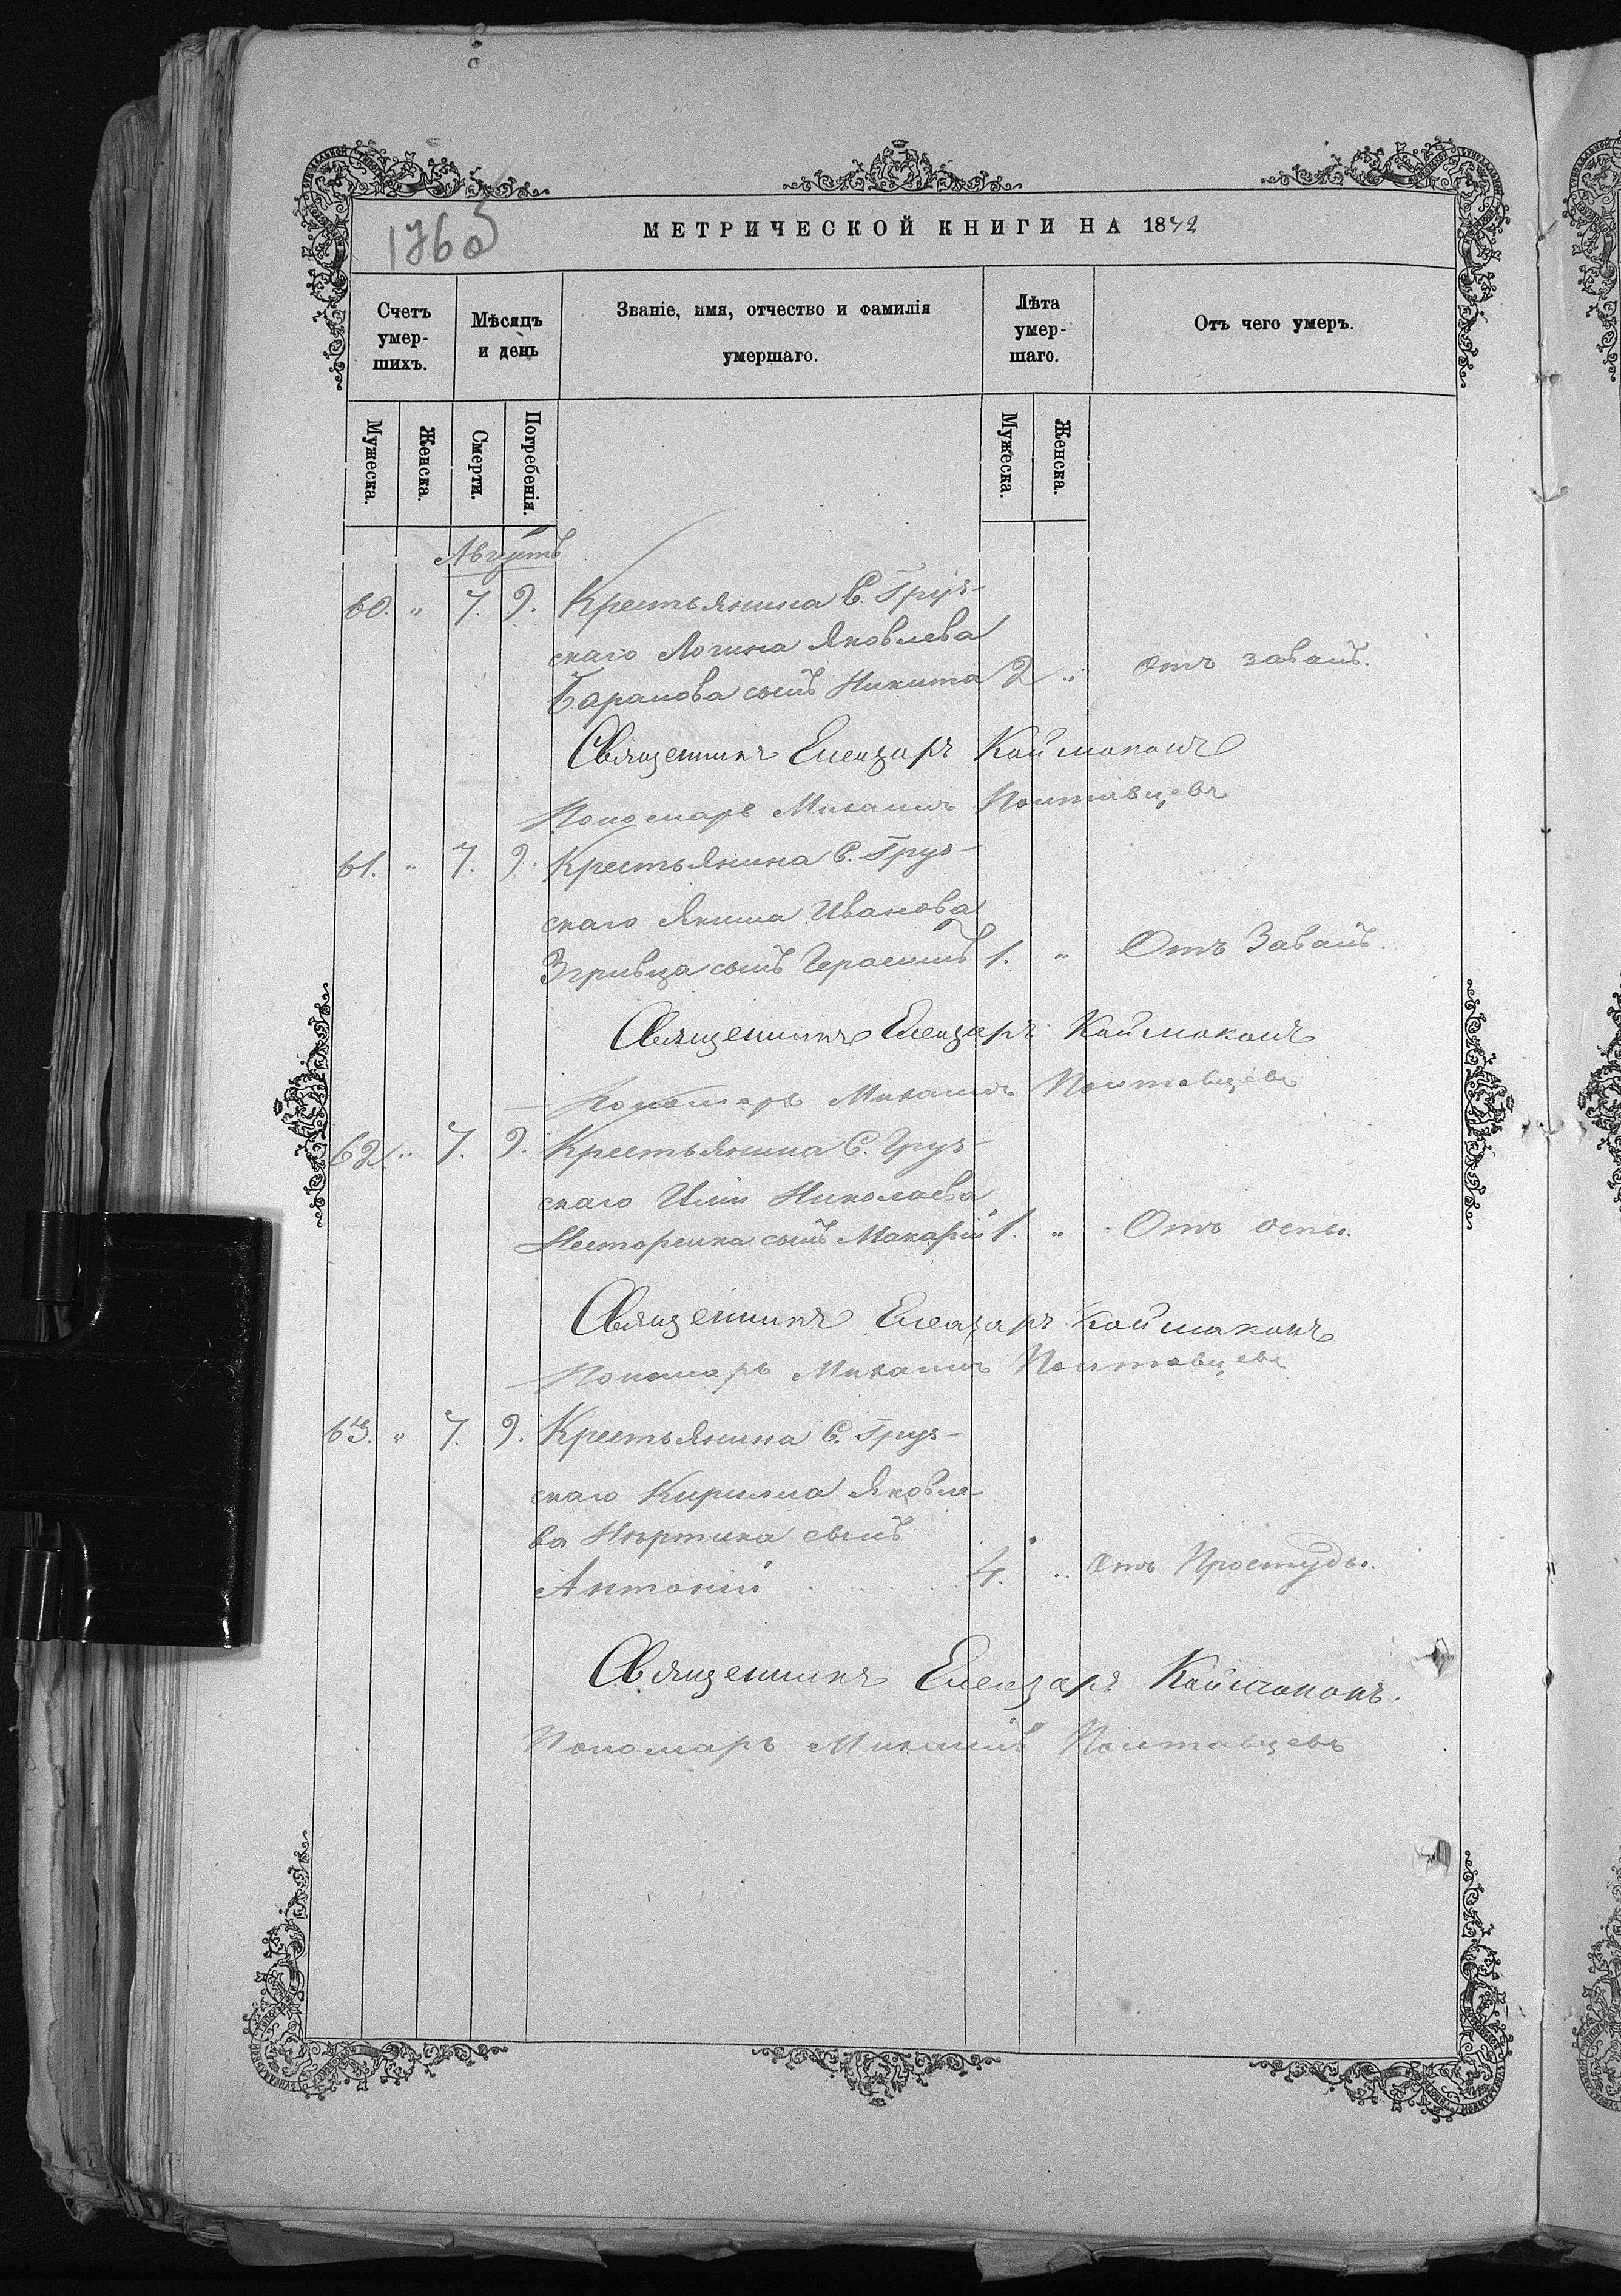 1765
МЕТРИЧЕСКОЙ КНИГИ НА 1872
Счетъ умер-шихъ.
Мѣсяцъ и день
Званіе, имя, отчество и фамилія умершаго.
Лѣта умер-шаго.
Отъ чего умеръ.
Мужеска.
Женска.
Смерти.
Погребенія.
Мужеска.
Женска.
Августъ
60. " 7. 9. Крестьянина С. Груз-
скаго Логина Яковлева
Баранова сынъ Никита 2 " Отъ завалъ.
Священникъ Елеазаръ Каймаканъ
Пономарь Михаилъ Полтавцевъ
61. " 7. 9. Крестьянина С. Груз-
скаго Якима Иванова
Згривца сынъ Герасимъ 1. " Отъ Завалъ.
Священникъ Елеазаръ Каймаканъ
Пономарь Михаилъ Полтавцевъ
62. " 7. 9. Крестьянина С. Груз-
скаго Иліи Николаева
Несторенка сынъ Макарій 1. " Отъ оспы.
Священникъ Елеазаръ Каймаканъ
Пономарь Михаилъ Полтавцевъ
63. " 7. 9. Крестьянина С. Груз-
скаго Кирилла Яковле-
ва сынъ
Антоній 4. " Отъ Простуды.
Священникъ Елеазаръ Каймаканъ.
Пономарь Михаилъ Полтавцевъ